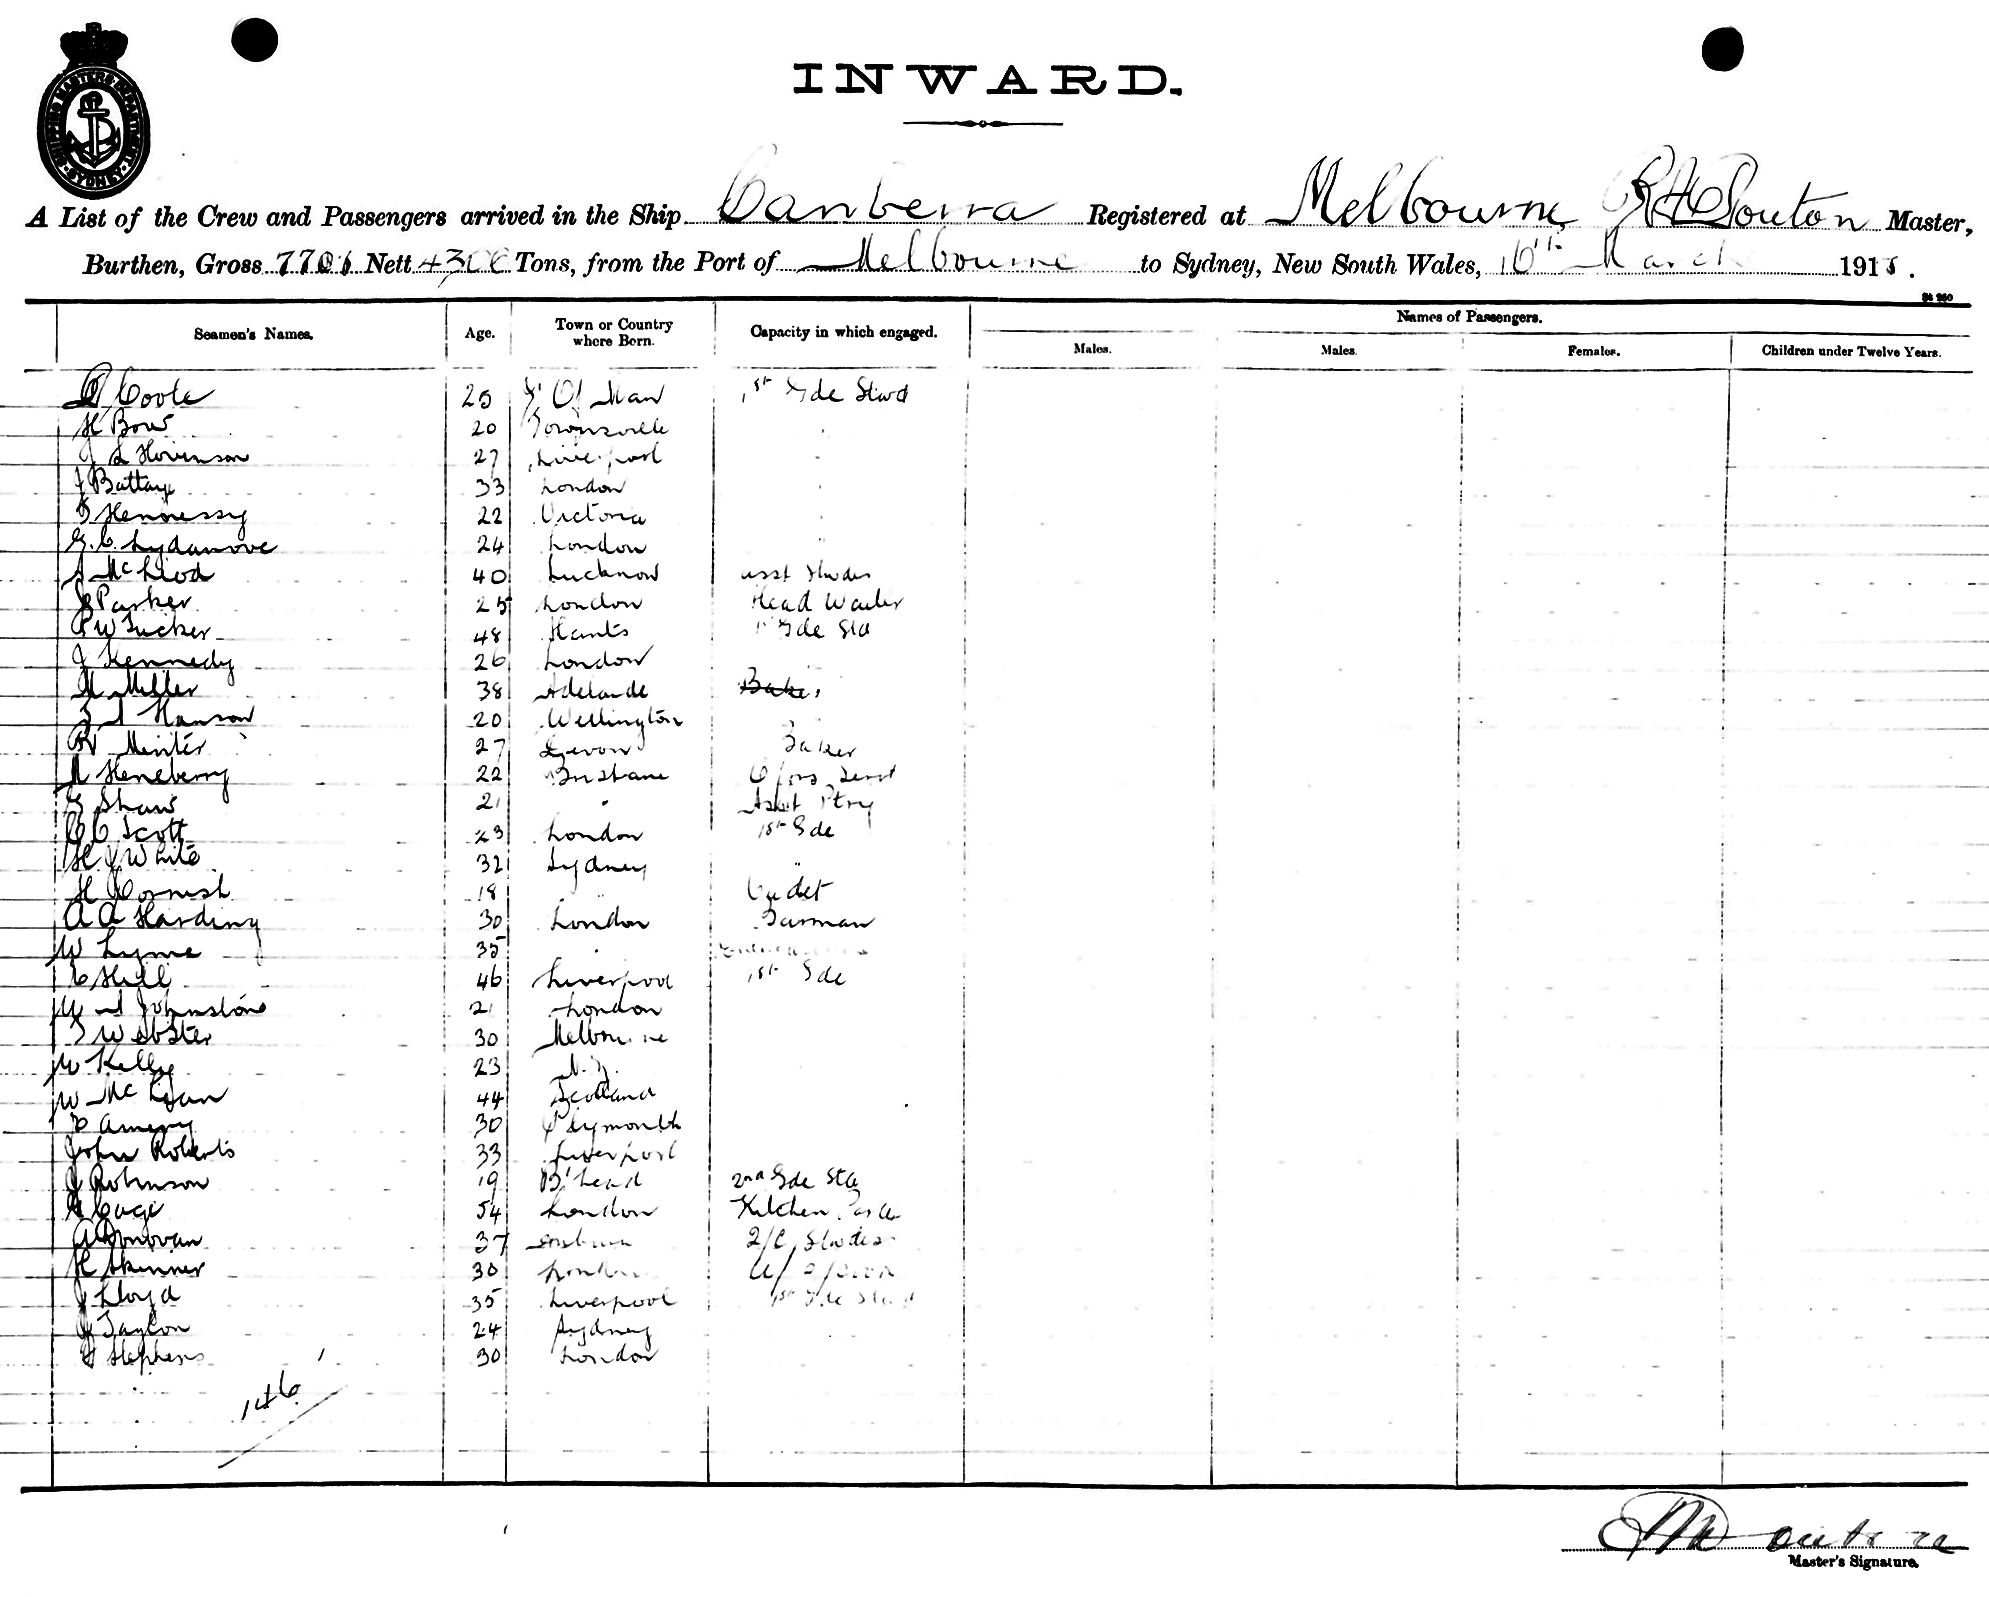 SHIPPING MASTERS DEPARTMENT SYDNEY
INWARD.
A List of the Crew and Passengers arrived in the Ship Canberra Registered at Melbourne Master,
Burthen, Gross Nett Tons, from the Port of Melbourne to Sydney, New South Wales, March 191
Names of Passengers.
Seamen's Names. Age. Town or Country where Born. Capacity in which engaged. Males. Males. Females. Children under Twelve Years.
Coole 25 Of Man 1st Gde Stwd
H Bow 20 Townsville
27 Liverpool
J Battay 33 London
Hennessy 22 Victoria
G. C. 24 London
McLeod 40 Lucknow asst Stwdes
Parker 25 London Head Waiter
P W Tucker 48 Hants 1st Gde Std
J Kennedy 26 London
Miller 38 Adelaide Baker
Hanson 20 Wellington
Minter 27 Devon Baker
Heneberry 22 Brisbane
Shaw 21 " Asst Ptry
C C Scott 23 London 1st Gde
H J White 32 Sydney "
H Cornish 18 " Cadet
A A Harding 30 London Barman
W Lyme 35 "
C Hill 46 Liverpool 1st Gde
W Johnstone 21 London
Webster 30 Melbourne
W Kelly 23 N. Z.
W McLean 44 Scotland
Amery 30 Plymouth
John Roberts 33 Liverpool
J Robinson 19 B'head 2nd Gde Std
Cage 54 London Kitchen
A Donovan 37 2/C Stwdes
H Skinner 30 London
J Lloyd 35 Liverpool 1st Gde Stwd
J Taylor 24 Sydney
Stephens 30 London
146
Master's Signature.